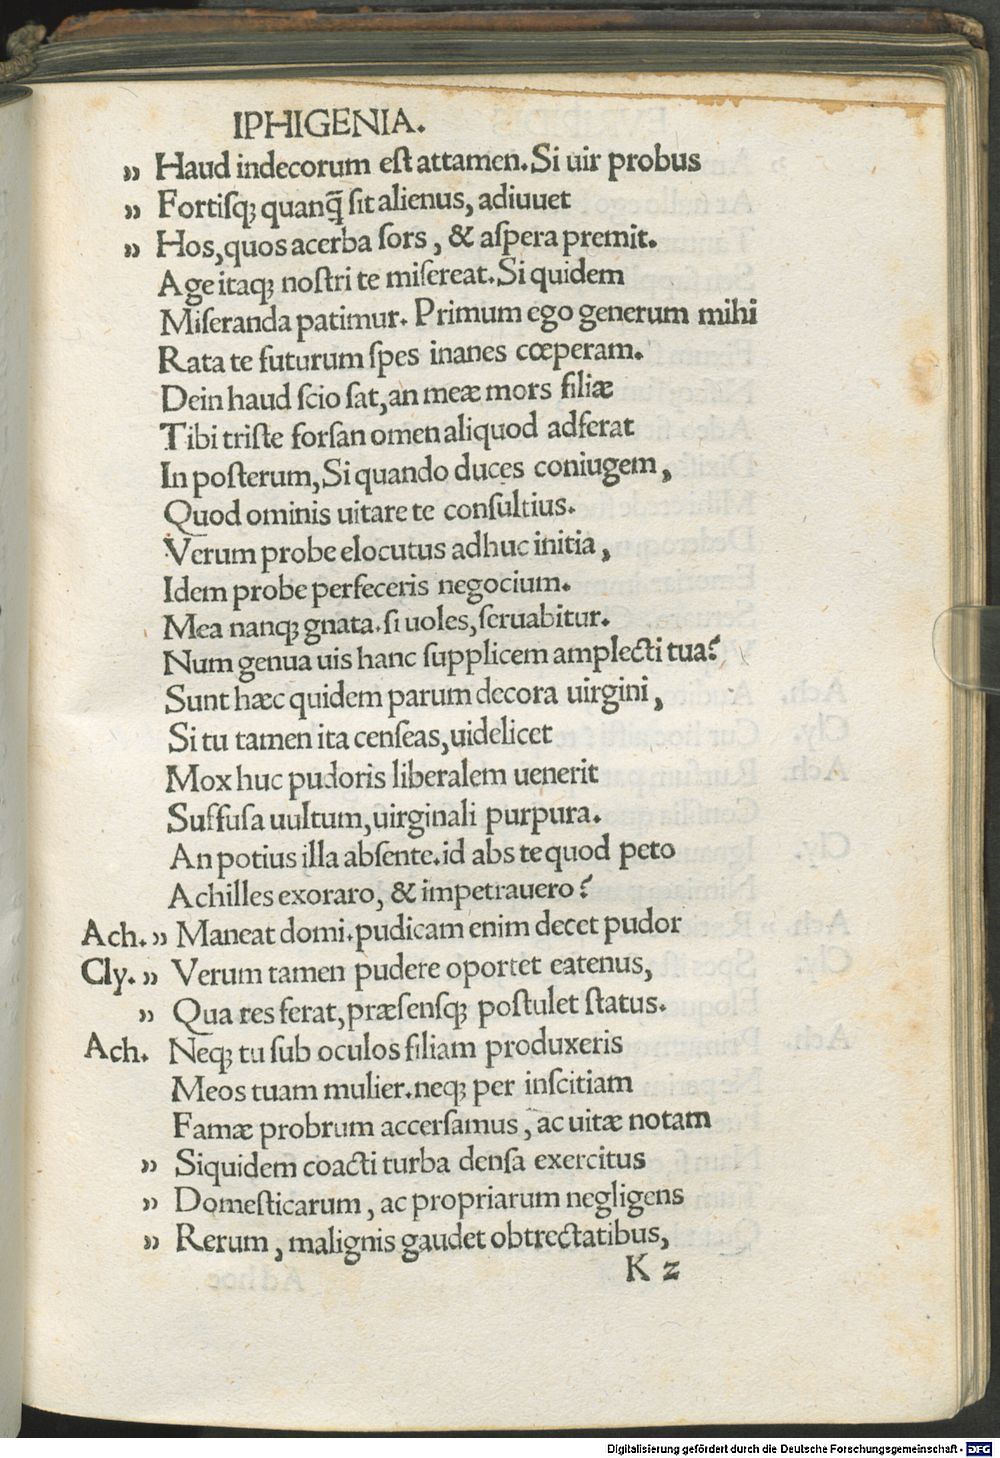 IPHIGENIA.
„ Haud indecorum est attamen. Si uir probus
„ Fortisqꝫ quanq̃ sit alienus, adiuuet
„ Hos, quos acerba sors, & aspera premit.
Age itaqꝫ nostri te misereat. Si quidem
Miseranda patimur. Primum ego generum mihi
Rata te futurum spes inanes cœperam.
Dein haud scio sat, an meæ mors filiæ
Tibi triste forsan omen aliquod adferat
In posterum, Si quando duces coniugem,
Quod ominis uitare te consultius.
Verum probe elocutus adhuc initia,
Idem probe perfeceris negocium.
Mea nanqꝫ gnata. si uoles, seruabitur.
Num genua uis hanc supplicem amplecti tua?
Sunt hæc quidem parum decora uirgini,
Si tu tamen ita censeas, uidelicet
Mox huc pudoris liberalem uenerit
Suffusa uultum, uirginali purpura.
An potius illa absente. id abs te quod peto
Achilles exoraro, & impetrauero?
Ach. „ Maneat domi. pudicam enim decet pudor
Cly. „ Verum tamen pudere oportet eatenus,
„ Qua res ferat, præsensqꝫ postulet status.
Ach. Neqꝫ tu sub oculos filiam produxeris
Meos tuam mulier. neqꝫ per inscitiam
Famæ probrum accersamus, ac uitæ notam
„ Siquidem coacti turba densa exercitus
„ Domesticarum, ac propriarum negligens
„ Rerum, malignis gaudet obtrectatibus,
K 2
Digitalisierung gefördert durch die Deutsche Forschungsgemeinschaft - DFG